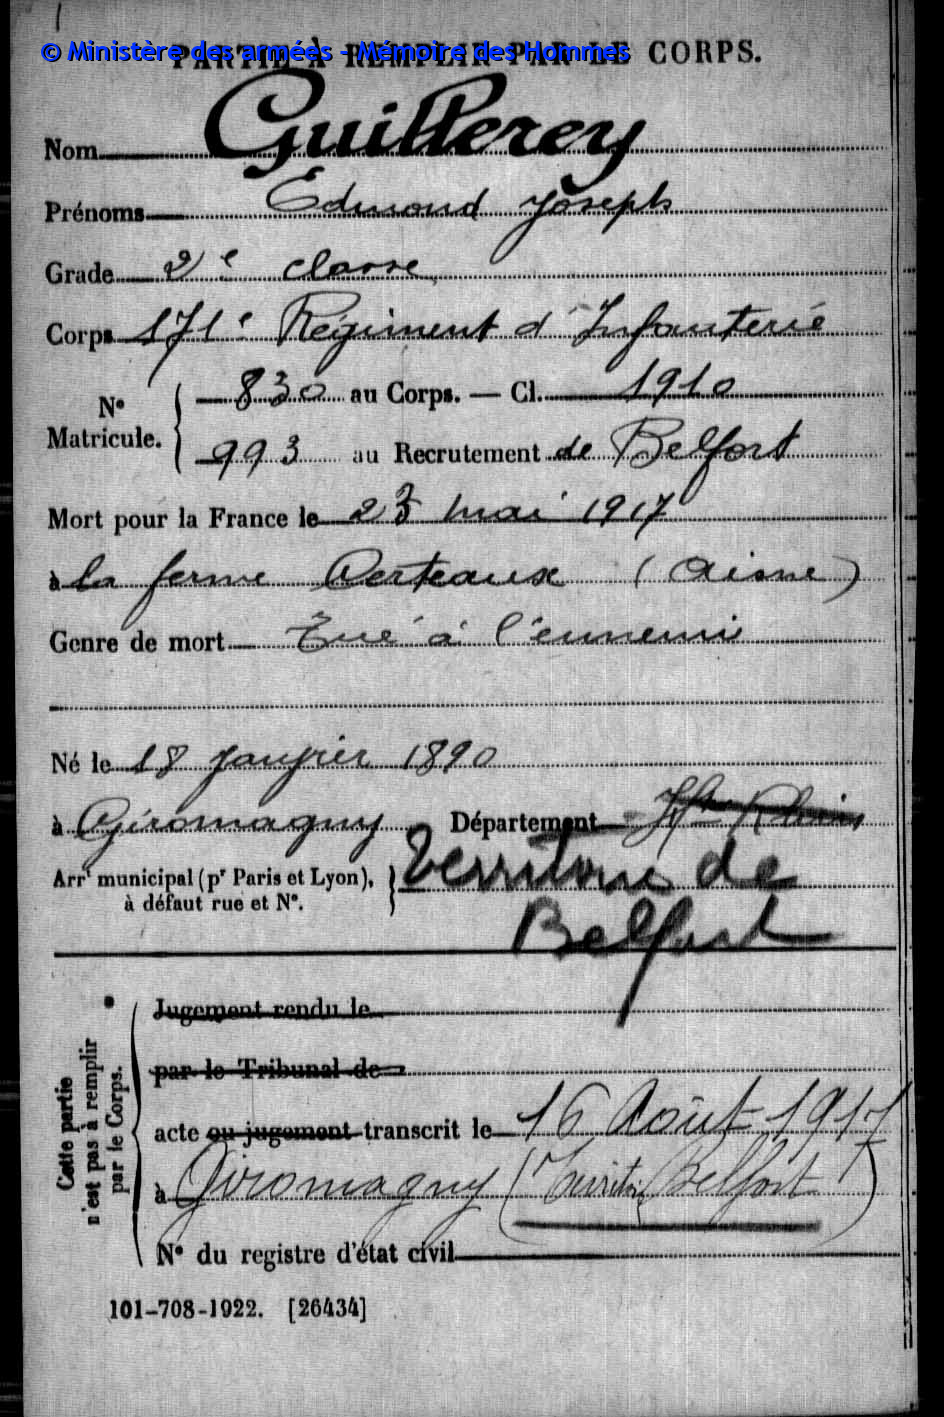 PARTIE À REMPLIR PAR LE CORPS.
© Ministère des armées - Mémoire des Hommes
Nom Guillerey
Prénoms Edmond Joseph
Grade 2e classe
Corps 171e Régiment d'Infanterie
N° Matricule. 830 au Corps. — Cl. 1910
993 au Recrutement de Belfort
Mort pour la France le 23 mai 1917
à la ferme Certeaux (Aisne)
Genre de mort Tué à l'ennemi
Né le 18 janvier 1890
à Giromagny Département Hte Rhin
Arrt municipal (pr Paris et Lyon), Territoire de
à défaut rue et N°. Belfort
Cette partie n'est pas à remplir par le Corps.
Jugement rendu le
par le Tribunal de
acte ou jugement transcrit le 16 Août 1917
à Giromagny (Territ. Belfort)
N° du registre d'état civil
101-708-1922. [26434]